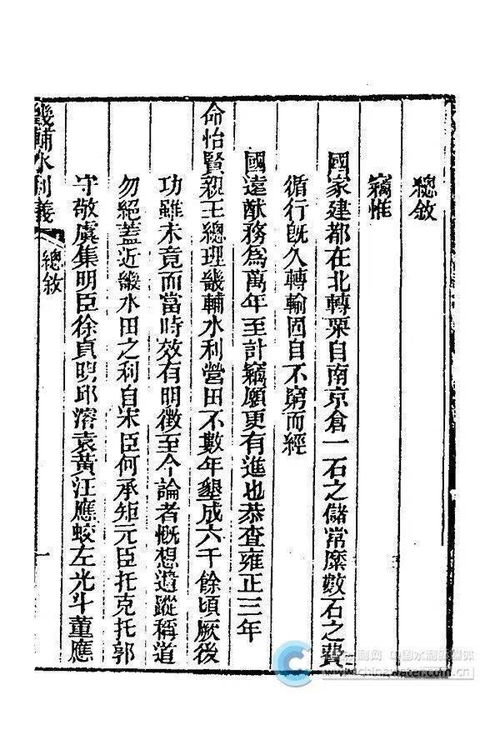 總敘
竊惟
國家建都在北轉粟自南京倉一石之儲常糜數石之費
循行旣久轉輸固自不窮而經
國遠猷務爲萬年至計竊願更有進也恭查雍正三年
命怡賢親王總理畿輔水利營田不數年墾成六千餘頃厥後
功雖未竟而當時效有明徵至今論者慨想遺蹤稱道
勿絕蓋近畿水田之利自宋臣何承矩元臣托克托郭
守敬虞集明臣徐貞明邱濬袁黃汪應蛟左光斗董應
畿輔水利議
總敘
一
www.chinawater.com.cn